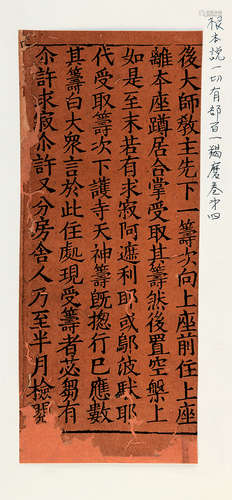 根本說一切有部百一羯磨卷第四
後大師教主先下一籌次向上座前住上座
離本座蹲居合掌受取其籌然後置空槃上
如是至末若有求寂阿遮利耶或鄔波馱耶
代受取籌次下護寺天神籌既揔行已應數
其籌白大眾言於此住處現受籌者苾芻有
尒許求寂尒許又分房舍人乃至半月檢閱